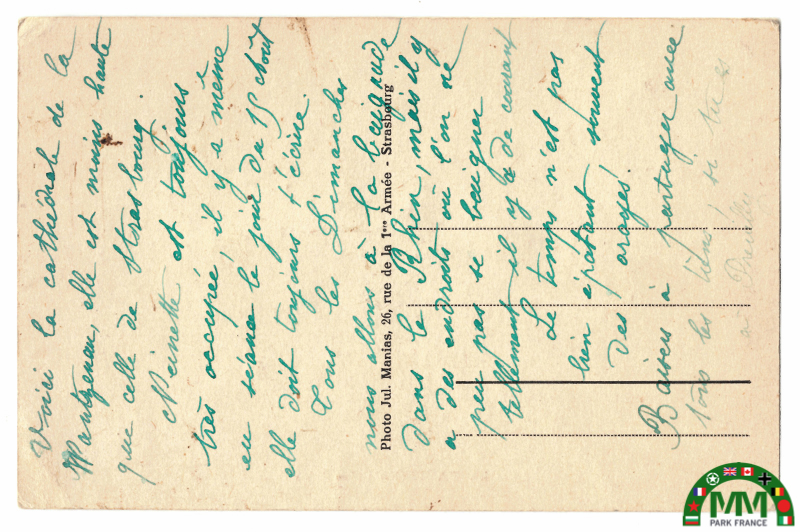 Voici la cathédrale de la
Wantzenau, elle est moins haute
que celle de Strasbourg.
Ninette est toujours
très occupée, il y a même
eu séance le jour du 15 Août
elle doit toujours t'écrire.
Tous les Dimanches
nous allons à la baignade
dans le Rhin, mais il y
a des endroits où l'on ne
peu pas se baigner
tellement il y a de courant
Le temps n'est pas
bien épatant souvent
des orages.
Baisers à partager avec
tous les tiens si tu es
à
Photo Jul. Manias, 26, rue de la 1ère Armée - Strasbourg
MM
PARK FRANCE